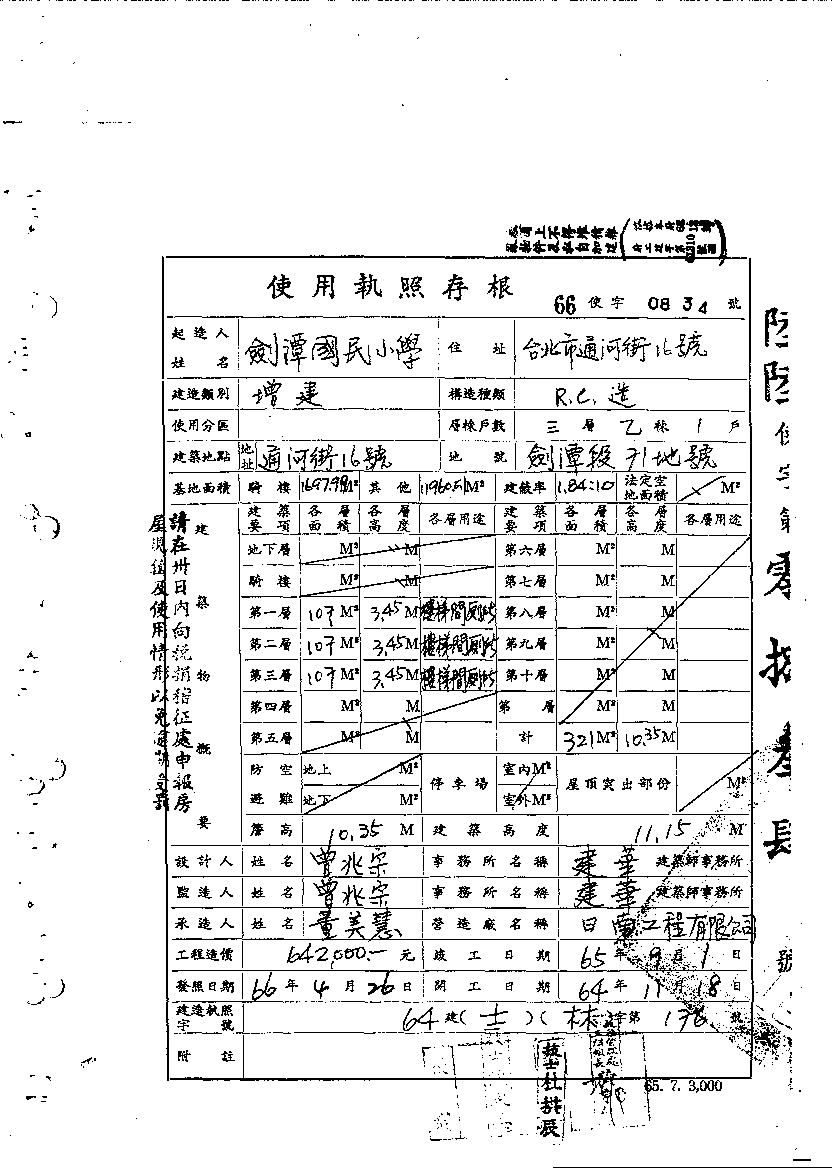 使用執照存根
66 使字 0834 號
起造人姓名 劍潭國民小學 住址 台北市通河街16號
建造類別 增建 構造種類 R.C.造
使用分區 層棟戶數 三層乙棟1戶
建築地點 地址 通河街16號 地號 劍潭段71地號
基地面積 騎樓 1697.98M² 其他 11960.51M² 建蔽率 1.84:10 法定空地面積 M²
建築物概要 建築要項 各層面積 各層高度 各層用途 建築要項 各層面積 各層高度 各層用途
地下層 M² M 第六層 M² M
騎樓 M² M 第七層 M² M
第一層 107M² 3.45M 樓梯間廁所 第八層 M² M
第二層 107M² 3.45M 樓梯間廁所 第九層 M² M
第三層 107M² 3.45M 樓梯間廁所 第十層 M² M
第四層 M² M 第 層 M² M
第五層 M² M 計 321M² 10.35M
防空避難 地上 M² 停車場 室內M² 屋頂突出部份 M²
地下 M² 室外M²
簷高 10.35 M 建築高度 11.15 M
設計人 姓名 曾兆宗 事務所名稱 建華 建築師事務所
監造人 姓名 曾兆宗 事務所名稱 建華 建築師事務所
承造人 姓名 董美慧 營造廠名稱 日 工程有限公司
工程造價 642,000.- 元 竣工日期 65年9月1日
發照日期 66年4月26日 開工日期 64年11月18日
建造執照字號 64建(士)(林)字第 號
附註
65. 7. 3,000
請在卅日內向稅捐稽征處申報房
屋現值及使用情形以免逾期受罰
技士杜
號